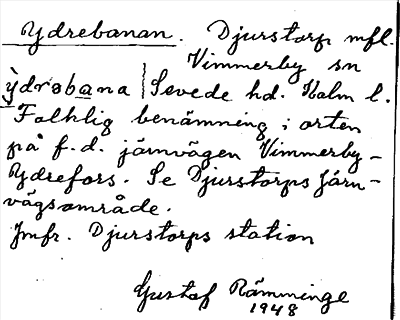 Ydrebanan. Djurstorp mfl.
Vimmerby sn
ỳdrəbana Sevede hd. Kalm l.
Folklig benämning i orten
på f.d. järnvägen Vimmerby-
Ydrefors. Se Djurstorps järn-
vägsområde.
Jmfr. Djurstorps station
Gustaf Rämminge
1948